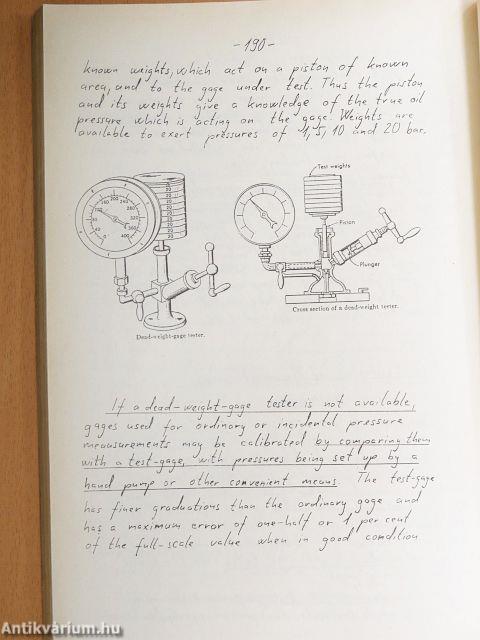 -190-
known weights, which act on a piston of known
area, and to the gage under test. Thus the piston
and its weights give a knowledge of the true oil
pressure which is acting on the gage. Weights are
available to exert pressures of 1, 5, 10 and 20 bar.
Test weights
Piston
Plunger
Dead-weight-gage tester.
Cross section of a dead-weight tester.
If a dead-weight-gage tester is not available,
gages used for ordinary or incidental pressure
measurements may be calibrated by comparing them
with a test-gage, with pressures being set up by a
hand pump or other convenient means. The test-gage
has finer graduations than the ordinary gage and
has a maximum error of one-half or 1 per cent
of the full-scale value when in good condition
Antikvárium.hu